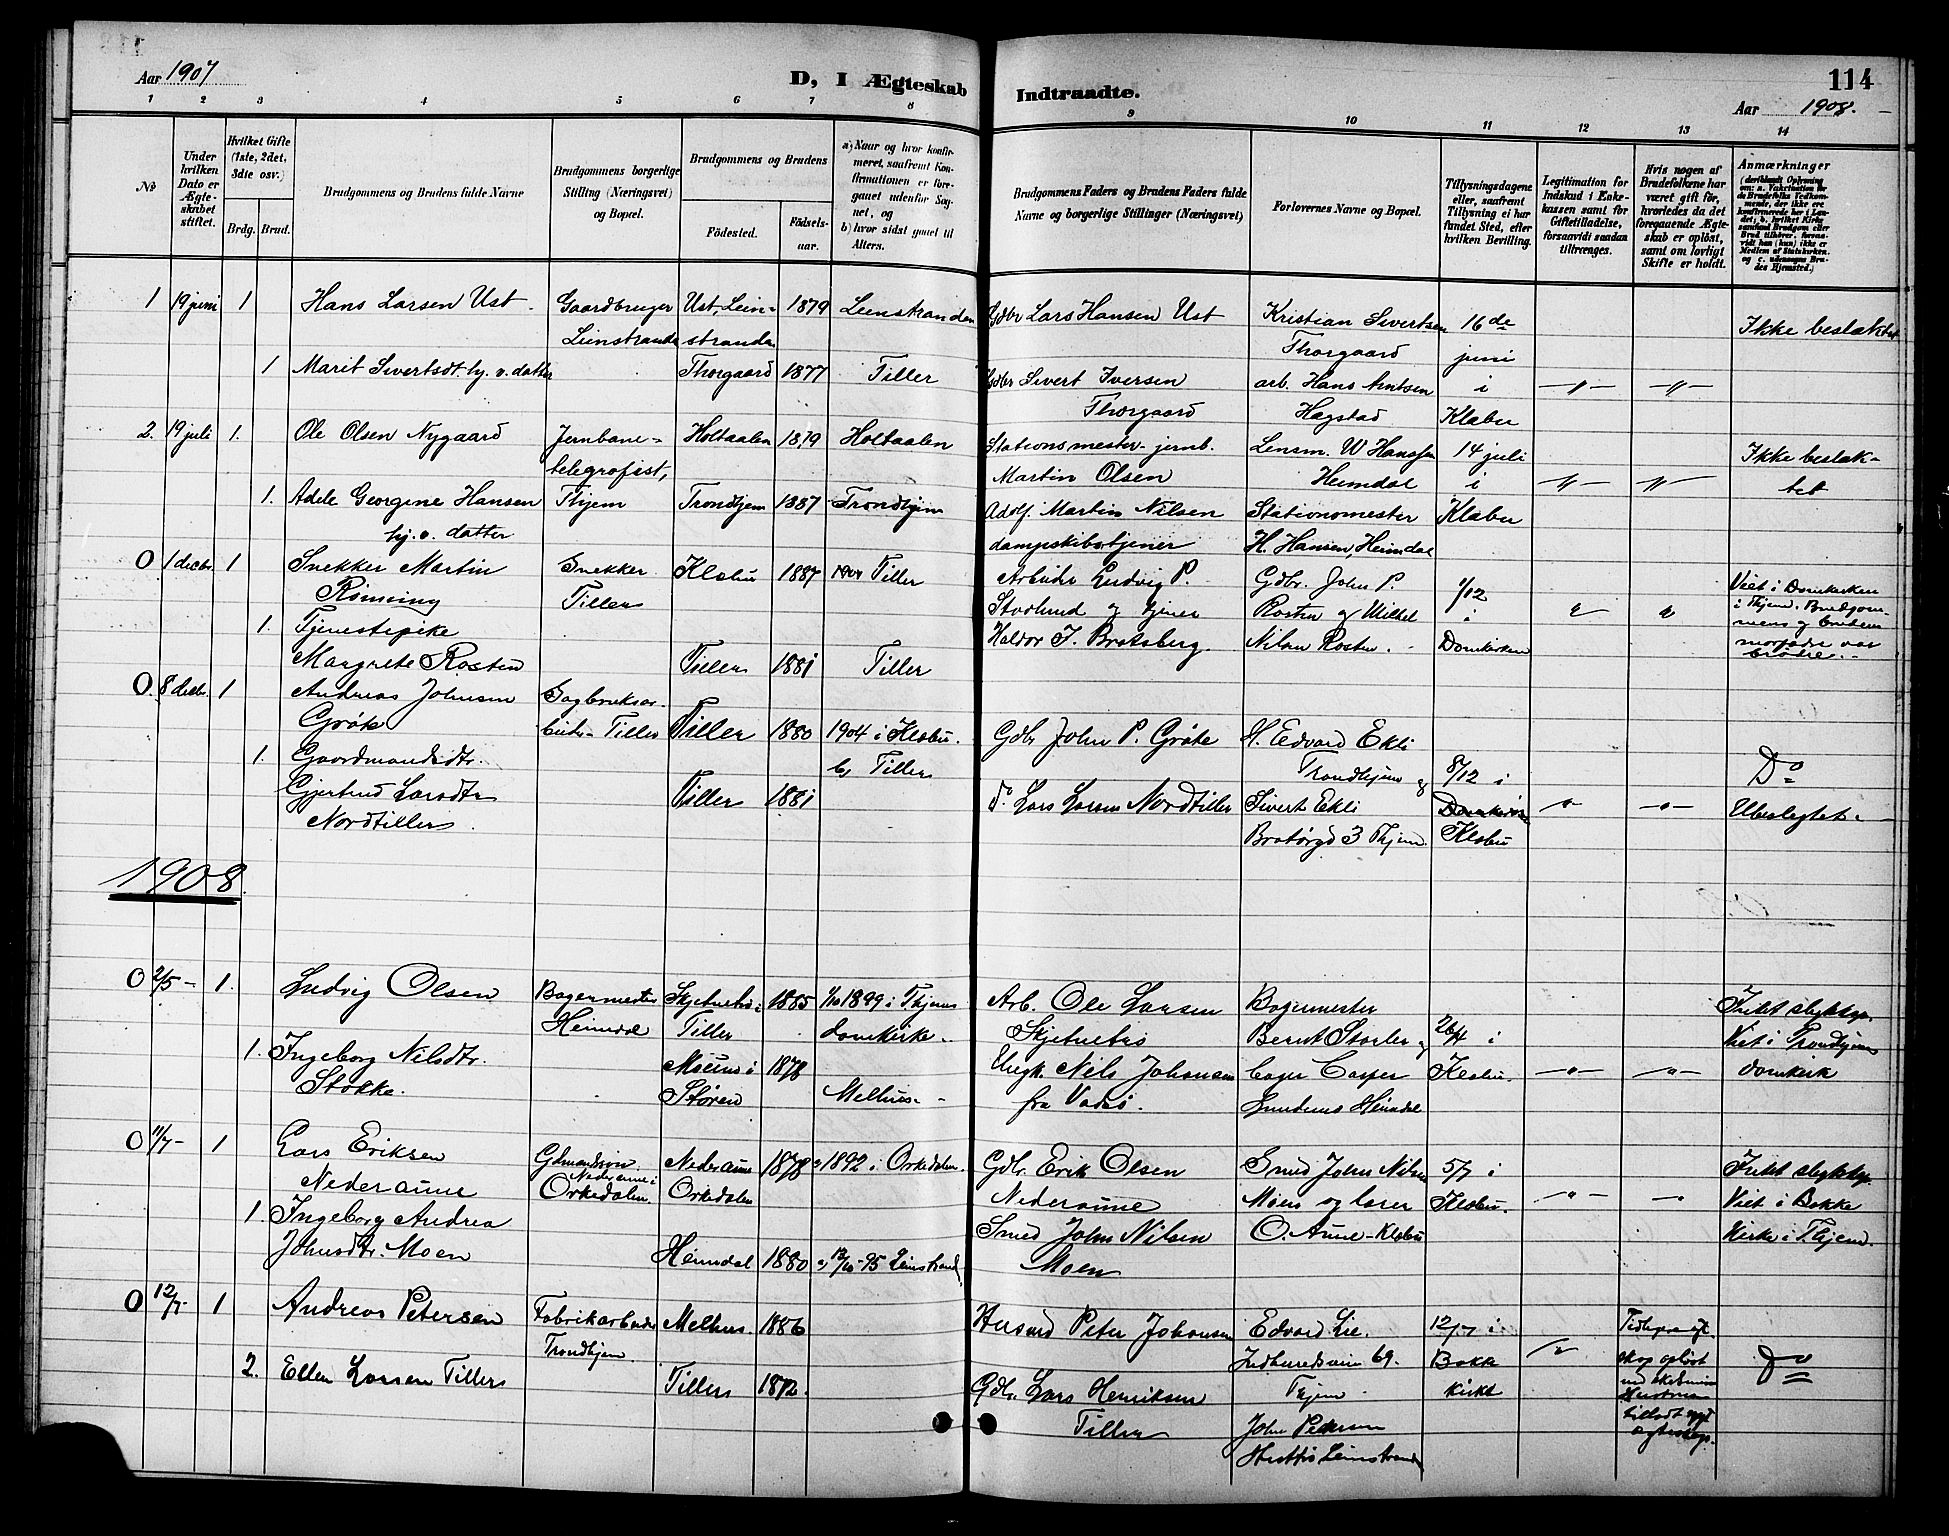 Aar 1907
D, I Ægteskab Indtraadte.
114
Aar 1908.
1 2 3 4 5 6 7 8 9. 10 11 12 13 14
No
Under hvilken Dato er Ægteskabet stiftet.
Hvilket Gifte (1ste, 2det, 3die osv.)
Brdg. Brud.
Brudgommens og Brudens fulde Navne
Brudgommens borgerlige Stilling (Næringsvei) og Bopæl.
Brudgommens og Brudens
Fødested.
Fødselsaar.
a) Naar og hvor konfirmeret, saafremt Konfirmationen er foregaaet udenfor Sognet, og
b) hvor sidst gaaet til Alters.
Brudgommens Faders og Brudens Faders fulde Navne og borgerlige Stillinger (Næringsvei)
Forlovernes Navne og Bopæl.
Tillysningsdagene eller, saafremt Tillysning ei har fundet Sted, efter hvilken Bevilling.
Legitimation for Indskud i Enkekassen samt for Giftetilladelse, forsaavidt saadan tiltrænges.
Hvis nogen af Brudefolkene har været gift før, hvorledes da det foregaaende Ægteskab er opløst, samt om lovligt Skifte er holdt.
Anmærkninger
1 19 juni 1 Hans Larsen Ust Gaardbruger Ust, Lein- 1879 Leinstranden Gdbr Lars Hansen Ust Kristian Sivertsen 16de Ikke beslektet
Leinstranden stranden Thorgaard juni
1 Marit Sivertsdt. hj. v. datter Thorgaard 1877 Tiller Gdbr Sivert Iversen arb. Hans Arntsen i
Thorgaard Hagstad Klæbu
2. 19 juli 1. Ole Olsen Nygaard Jernbane- Holtaalen 1879 Holtaalen Stationsmester jernb. Lensm. W Hansen 14 juli Ikke beslæk-
telegrafist, Martin Olsen Heimdal i tet
1. Adele Georgine Hansen Thjem Trondhjem 1887 Trondhjem Adolf Martin Nilsen Stationsmester Klæbu
hj. v. datter dampskibstjener H. Hansen, Heimdal
0 1 decbr. 1 Snekker Martin Snekker Klæbu 1887 Tiller Arbeider Ludvig P. Gdbr. John P. 1/12 Viet i Domkirken
Tiller og Rosten og i i Thjem. Brudgom-
1. Tjenestepike Haldor J. Bratsberg. Nilsen Rosten. Domkirken mens og brudens
Margrete Rosten Tiller 1881 Tiller morfædre var brødre.
0 8 decbr. 1 Andreas Johnsen Sagbruksar-
Grøte beider Tiller Tiller 1880 1904 i Klæbu. Gdbr John P. Grøte H. Edvard Ekli
1. Gaardmandsdtr. b, Tiller Trondhjem og 8/12 i Do
Gjertrud Larsdtr Tiller 1881 do Lars Larsen Nordtiller Sivert Ekli Domkirken Ubeslegtet
Nordtiller. Bratørgd 3 Thjem. Klæbu
1908.
0 2/5 - 1. Ludvig Olsen Bagermester Skjetnetrø i 1885 1/10 1899 i Thjems Arb. Ole Larsen Bagermester
Heimdal Tiller domkirke. Skjetnetrø Bernt og 26/4 i Viet i Trondhjems
1. Ingeborg Nilsdtr. i 1878 Ungk. Nils Johansen bager Casper Klæbu. domkirk
Stokke. Støren Melhus. fra Vadsø. Heimdal
0 11/7 - 1 Lars Eriksen Nederaune 1878 1892 i Orkedalen. Gdbr. Erik Olsen Smed John Nilsen 5/7 i
Nederaune Orkedalen Orkedalen Nederaune Moen og lærer Klæbu. Viet i Bakke
1. Ingeborg Andrea Smed John Nilsen O. Aune - Klæbu Kirke i Thjem.
Johnsdtr. Moen Heimdal 1880 95 Leinstrand Moen
0 12/7 - 1 Andreas Petersen Fabrikarbeider Melhus. 1886 Husmd Peter Johansen Edvard Lie. 12/7 i
Trondhjem Indherredsveien 69. Bakke
2. Ellen Larsen Tiller Tiller 1872. Gdbr. Lars Henriksen Thjem. kirke Do
Tiller John Pedersen
Leinstrand